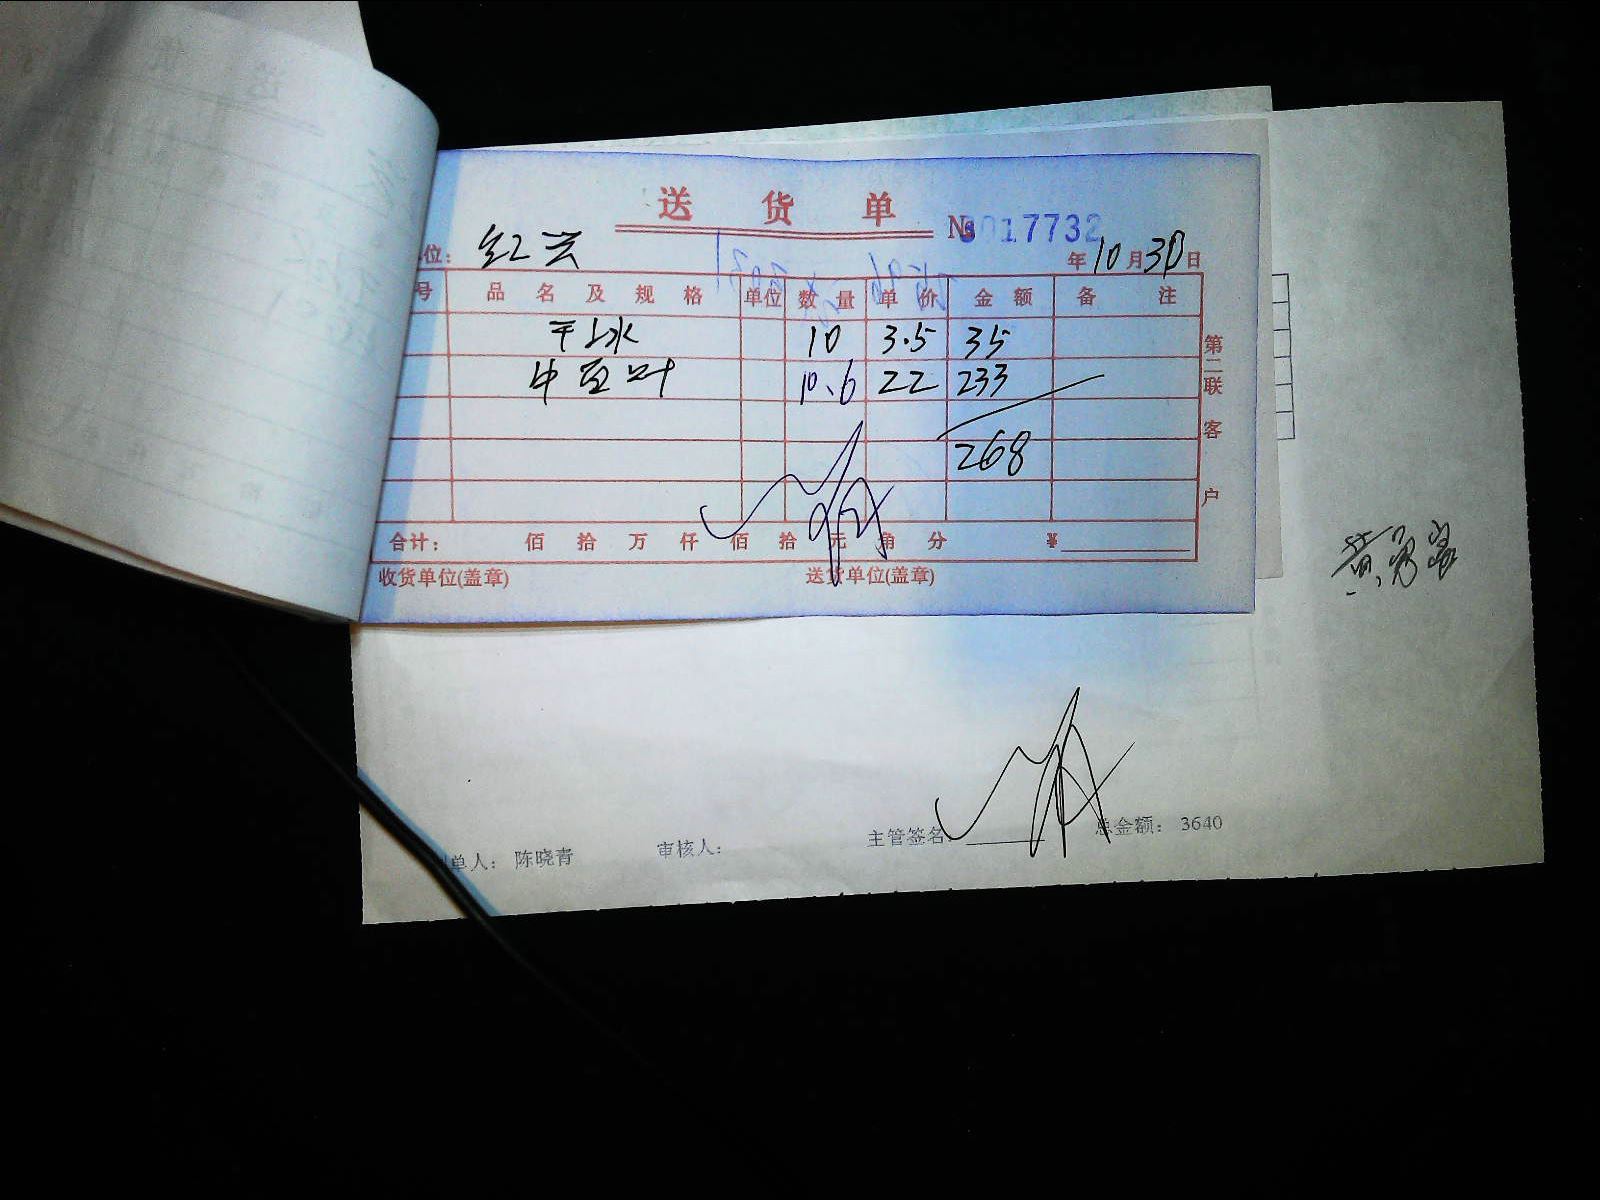 送货单
№ 0017732
位: 红兴 年10月30日
号 品名及规格 单位 数量 单价 金额 备注
10 3.5 35
10.6 22 233
268
合计: 佰 拾 万 仟 佰 拾 元 角 分 ¥
收货单位(盖章) 送货单位(盖章)
第二联 客户
单人: 陈晓青 审核人: 主管签名: 总金额: 3640